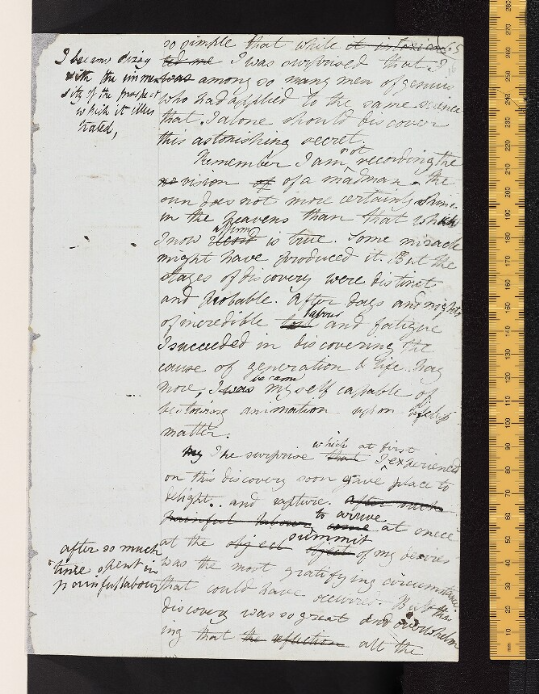 so simple that while
I became dizzy
with the immen
sity of the prospect
which it illus
trated,
led me I was surprised that I
was among so many men of genius
who had applied to the same science
that I alone should discover
this astonishing secret.
Remember I am not recording the
vision of of a madman. the
sun does not more certainly shine
in the heavens than that which
I now affirm is true. Some miracle
might have produced it. But the
stages of discovery were distinct
and probable. After days and nights
of incredible labour and fatigue
I succeeded in discovering the
cause of generation & life. Nay
more, I was became myself capable of
bestowing animation upon lifeless
matter.
my The surprise that which at first I experienced
on this discovery soon gave place to
delight and rapture. after such
painful labour to arrive came at once
after so much
time spent in
painful labour
at the object summit of my desires
was the most gratifying circumstance
that could have occurred. But this
discovery was so great and overwhelm
ing that the reflection all the